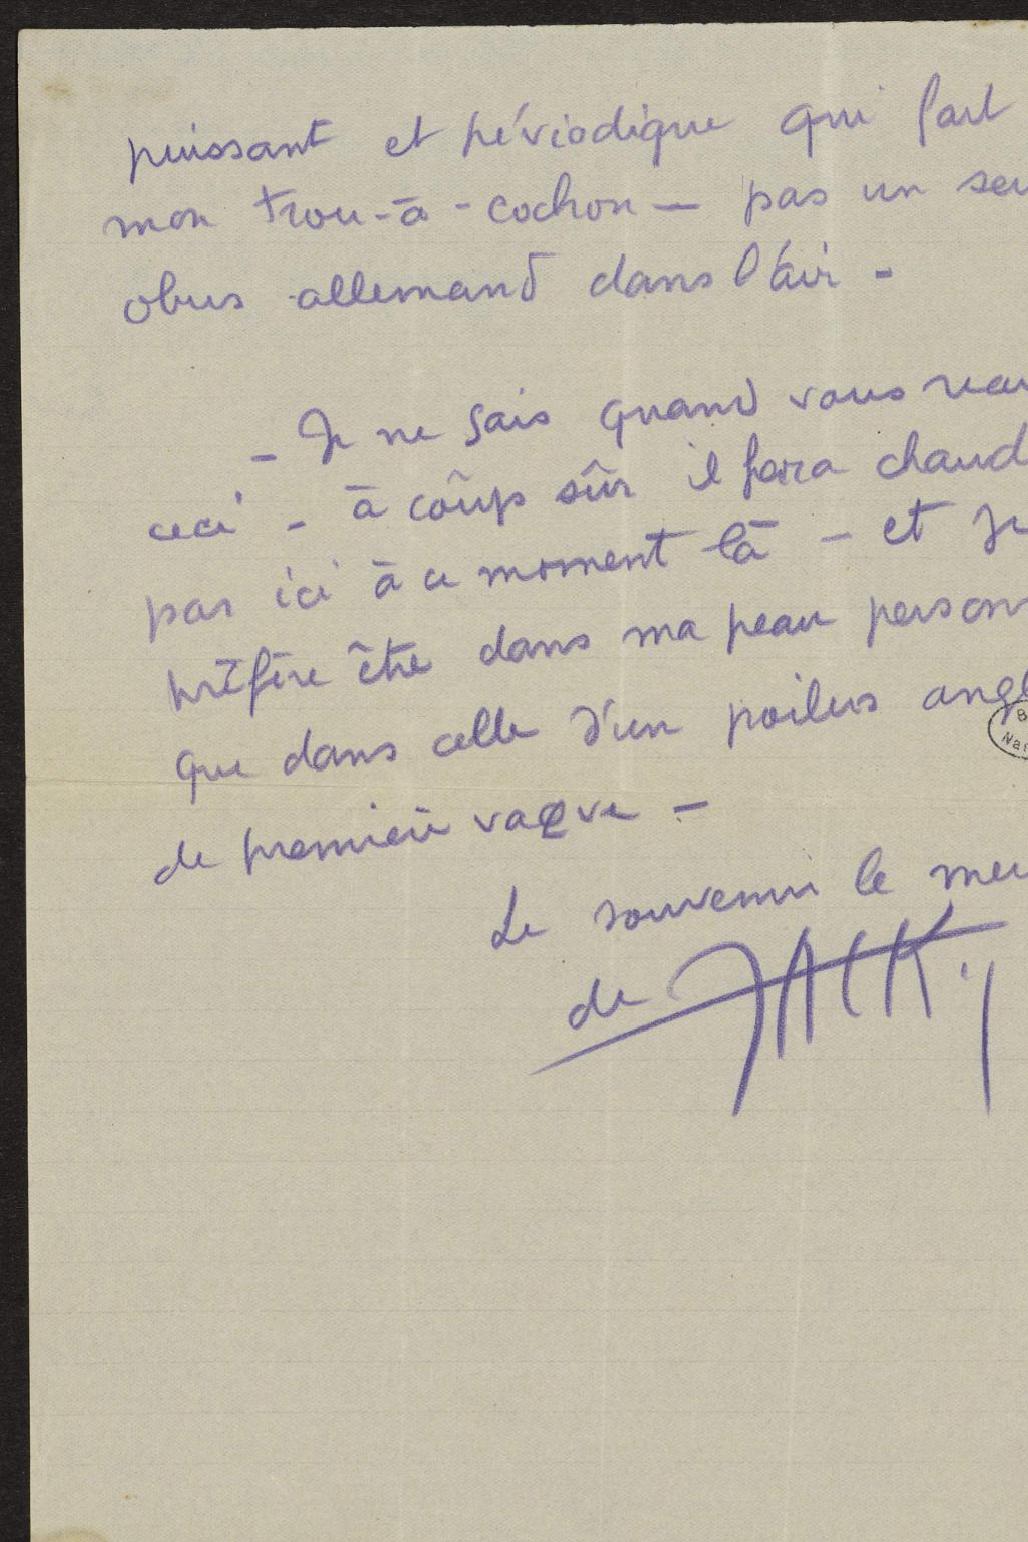 puissant et périodique qui fait
mon trou-à-cochon — pas un seu
obus allemand dans l'air -
- Je ne sais quand vous
ceci - à coûp sûr il fera chaud
par ici à ce moment là - et je
préfère être dans ma peau person
que dans celle d'un poilus angl
de première vague -
Le souvenir le mei
de JACK.